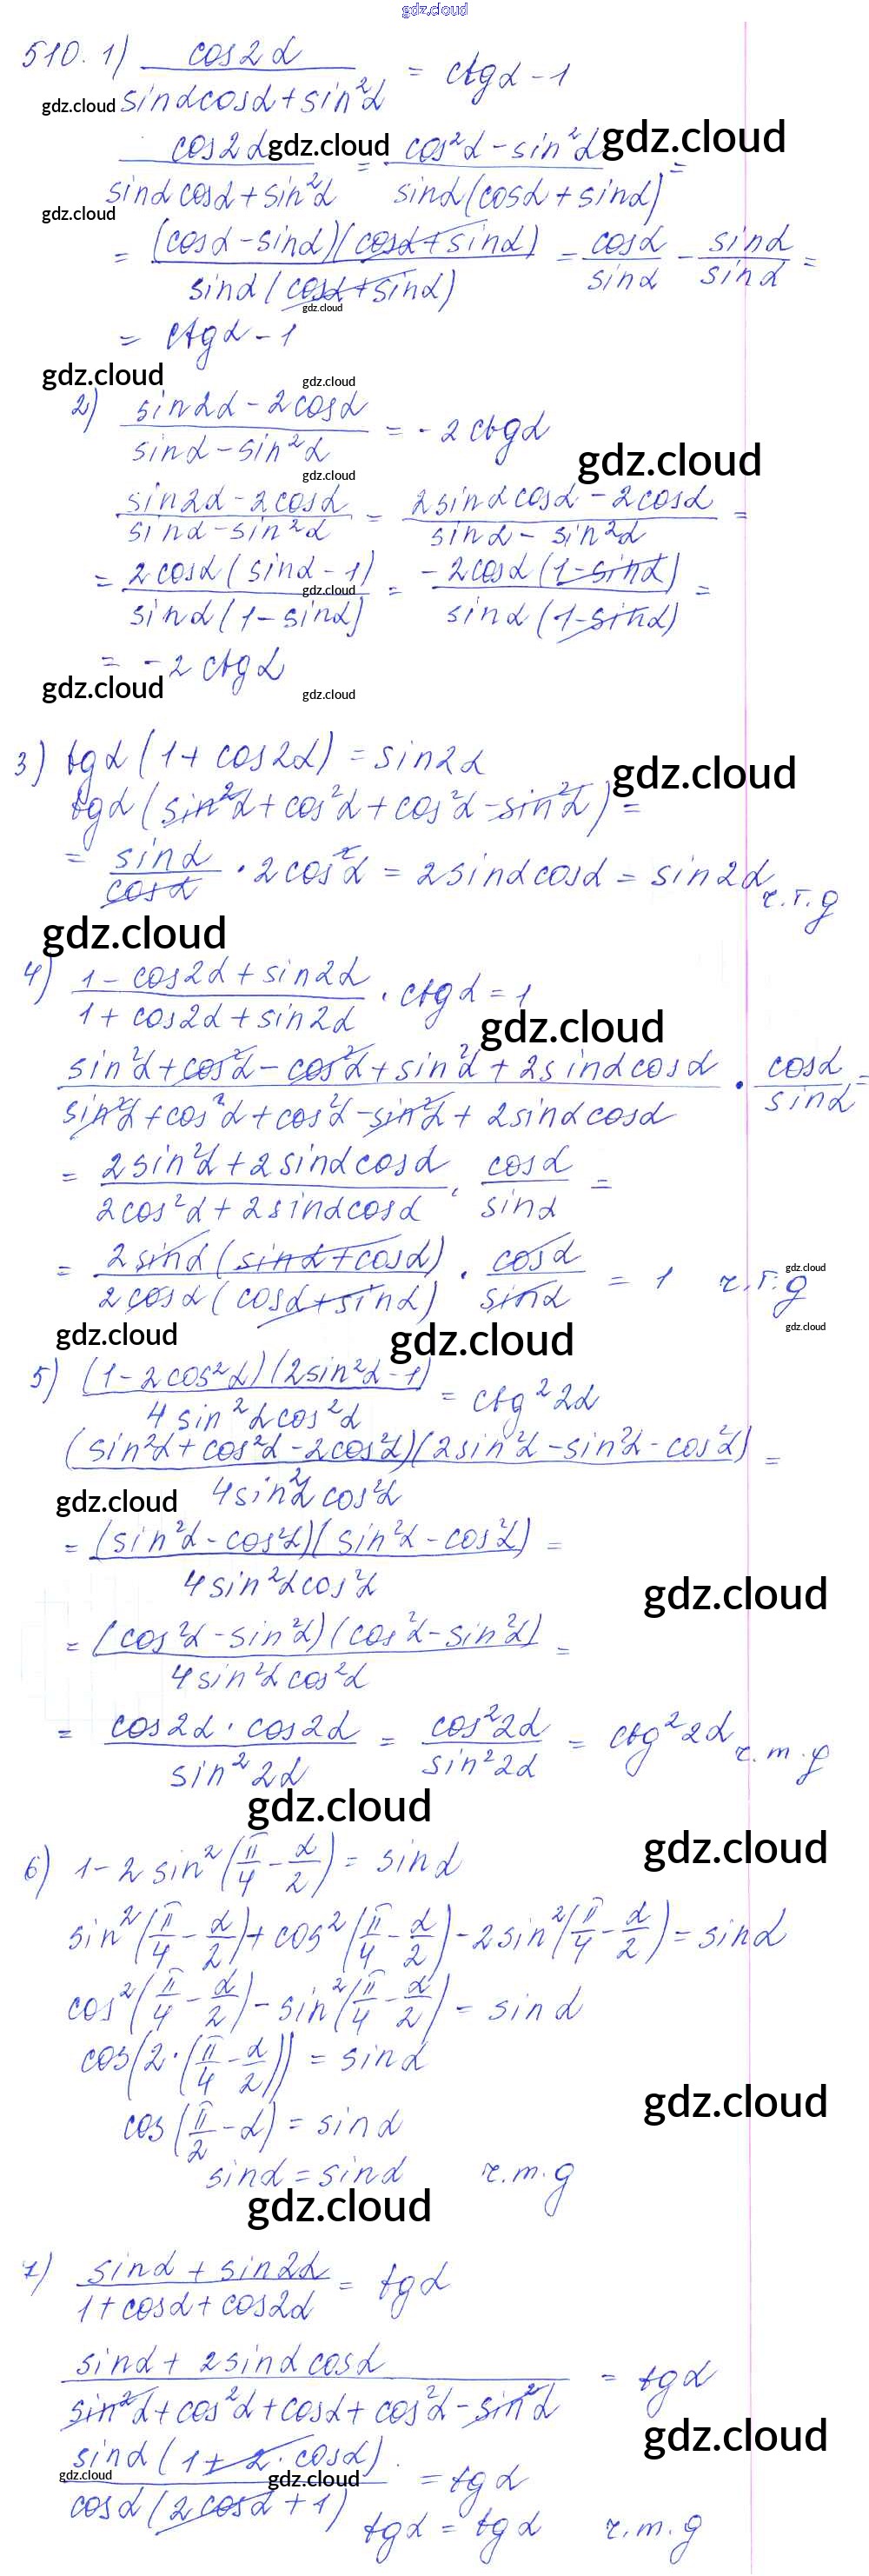 gdz.cloud
510. 1) cos2α / (sinαcosα + sin²α) = ctgα - 1
gdz.cloud
cos2α / (sinαcosα + sin²α) = (cos²α - sin²α) / (sinα(cosα + sinα)) =
gdz.cloud gdz.cloud
gdz.cloud
= (cosα - sinα)(cosα + sinα) / (sinα(cosα + sinα)) = cosα/sinα - sinα/sinα =
gdz.cloud
= ctgα - 1
gdz.cloud gdz.cloud
2) (sin2α - 2cosα) / (sinα - sin²α) = -2ctgα
gdz.cloud
gdz.cloud
(sin2α - 2cosα) / (sinα - sin²α) = (2sinαcosα - 2cosα) / (sinα - sin²α) =
= 2cosα(sinα - 1) / (sinα(1 - sinα)) = -2cosα(1 - sinα) / (sinα(1 - sinα)) =
gdz.cloud
= -2ctgα
gdz.cloud gdz.cloud
3) tgα(1 + cos2α) = sin2α
gdz.cloud
tgα(sin²α + cos²α + cos²α - sin²α) =
= sinα/cosα · 2cos²α = 2sinαcosα = sin2α ч.т.д
gdz.cloud
4) (1 - cos2α + sin2α) / (1 + cos2α + sin2α) · ctgα = 1
gdz.cloud
(sin²α + cos²α - cos²α + sin²α + 2sinαcosα) / (sin²α + cos²α + cos²α - sin²α + 2sinαcosα) · cosα/sinα =
= (2sin²α + 2sinαcosα) / (2cos²α + 2sinαcosα) · cosα/sinα =
= 2sinα(sinα + cosα) / (2cosα(cosα + sinα)) · cosα/sinα = 1 ч.т.д
gdz.cloud
gdz.cloud
gdz.cloud gdz.cloud
5) (1 - 2cos²α)(2sin²α - 1) / (4sin²αcos²α) = ctg²2α
(sin²α + cos²α - 2cos²α)(2sin²α - sin²α - cos²α) / (4sin²αcos²α) =
gdz.cloud
= (sin²α - cos²α)(sin²α - cos²α) / (4sin²αcos²α) =
gdz.cloud
= (cos²α - sin²α)(cos²α - sin²α) / (4sin²αcos²α) =
= cos2α · cos2α / sin²2α = cos²2α / sin²2α = ctg²2α ч.т.д
gdz.cloud
gdz.cloud
6) 1 - 2sin²(π/4 - α/2) = sinα
sin²(π/4 - α/2) + cos²(π/4 - α/2) - 2sin²(π/4 - α/2) = sinα
cos²(π/4 - α/2) - sin²(π/4 - α/2) = sinα
cos(2·(π/4 - α/2)) = sinα
gdz.cloud
cos(π/2 - α) = sinα
sinα = sinα ч.т.д
gdz.cloud
7) (sinα + sin2α) / (1 + cosα + cos2α) = tgα
(sinα + 2sinαcosα) / (sin²α + cos²α + cosα + cos²α - sin²α) = tgα
gdz.cloud
sinα(1 + 2·cosα) / (cosα(2cosα + 1)) = tgα
gdz.cloud gdz.cloud
tgα = tgα ч.т.д